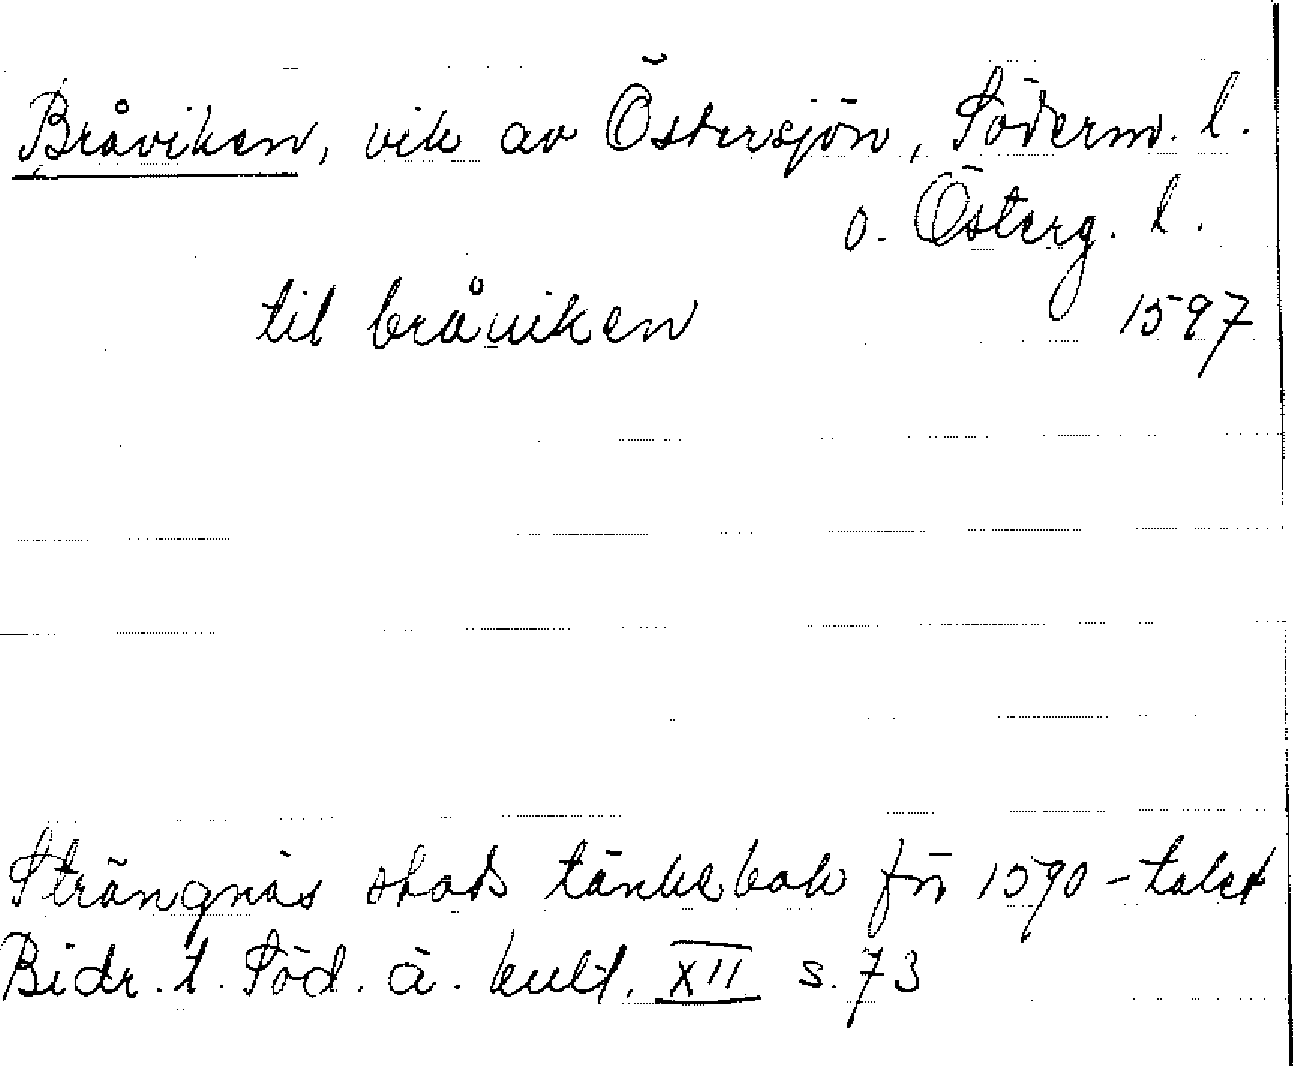 Bråviken, vik av Östersjön, Söderm. l.
o. Österg. l.
til bråuiken 1597
Strängnäs stads tänkebok för 1590-talet
Bidr. t. Söd. ä. kult. XII s. 73